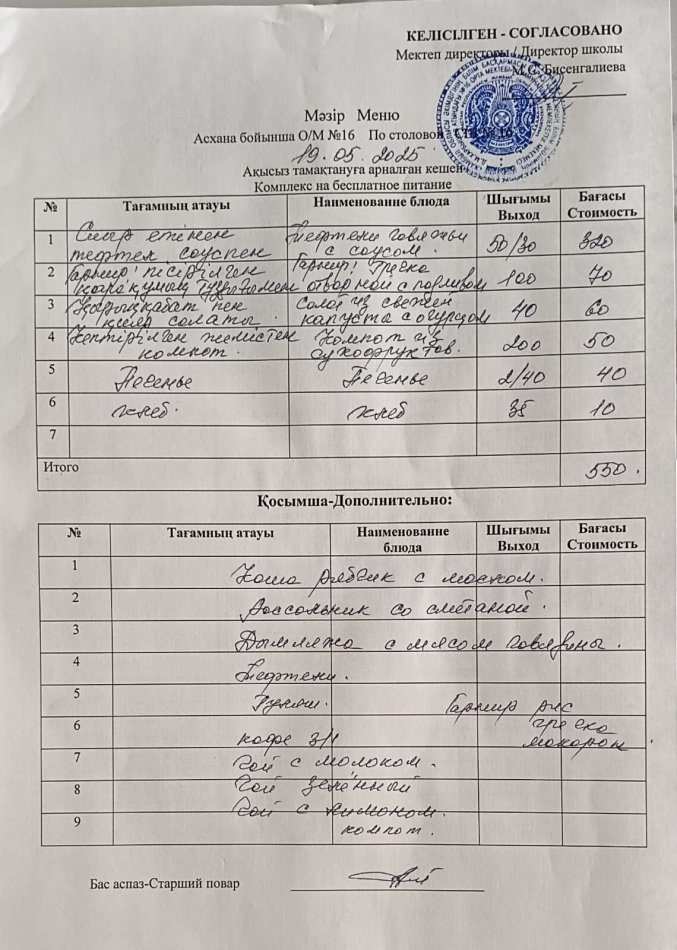 КЕЛІСІЛГЕН - СОГЛАСОВАНО
Мектеп директоры / Директор школы
М.С. Бисенгалиева
Мәзір Меню
Асхана бойынша О/М №16 По столовой СШ № 16
19.05.2025
Ақысыз тамақтануға арналған кешен
Комплекс на бесплатное питание
№ Тағамның атауы Наименованне блюда Шығымы Выход Бағасы Стоимость
1 Сиыр етінен тефтел соуспен Тефтели говяжьи с соусом. 50/30 320
2 Гарнир! пісірілген қарақұмық Гарнир! Греча отварной с подливом 100 70
3 қырыққабат пен қияр салаты. Солот из свежей капусты с огурцом 40 60
4 Кептірілген жемістен компот. Компот из сухофруктов. 200 50
5 Печенье Печенье 2/40 40
6 хлеб. хлеб 35 10
7
Итого 550.
Қосымша-Дополнительно:
№ Тағамның атауы Наименованне блюда Шығымы Выход Бағасы Стоимость
1 Каша с маслом.
2 Рассольник со сметаной.
3 Дымляжа с мясом говядины.
4 Тефтели.
5 Гуляш. Гарнир рис
греча
6 кофе 3/1 макарон.
7 Чай с молоком.
8 Чай зелёный
Чай с лимоном.
9 компот.
Бас аспаз-Старший повар